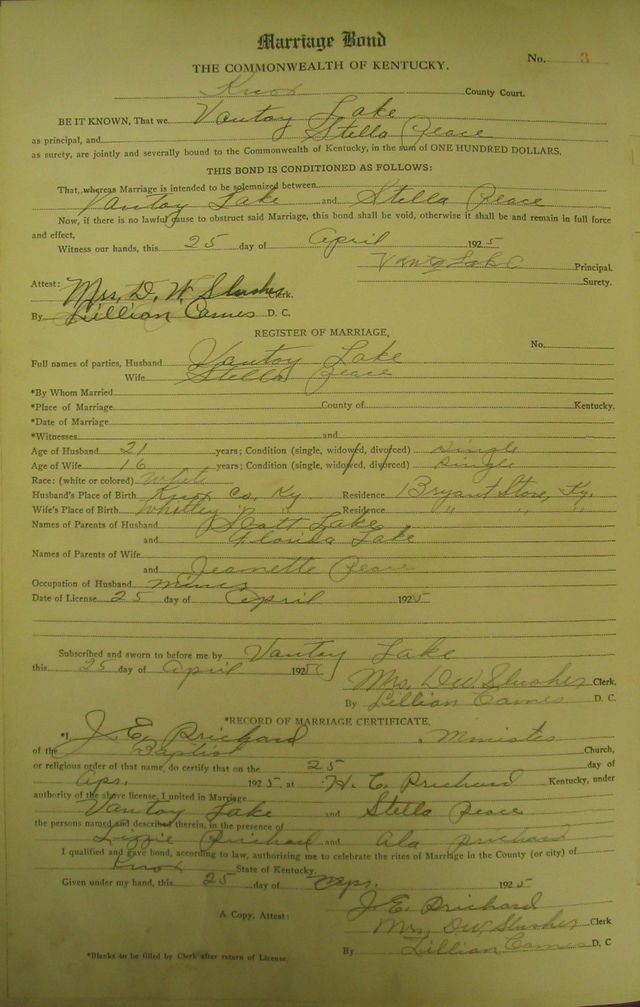 Marriage Bond
THE COMMONWEALTH OF KENTUCKY.
No. 3
Knox County Court.
BE IT KNOWN, That we Vantoy Lake
as principal, and Stella Peace
as surety, are jointly and severally bound to the Commonwealth of Kentucky, in the sum of ONE HUNDRED DOLLARS.
THIS BOND IS CONDITIONED AS FOLLOWS:
That, whereas Marriage is intended to be solemnized between
Vantoy Lake and Stella Peace
Now, if there is no lawful cause to obstruct said Marriage, this bond shall be void, otherwise it shall be and remain in full force
and effect,
Witness our hands, this 25 day of April 1925
Lake Principal.
Surety.
Attest: Mrs. D. W. Slusher Clerk.
By Lillian Cames D. C.
REGISTER OF MARRIAGE,
No.
Full names of parties, Husband Vantoy Lake
Wife Stella Peace
*By Whom Married
*Place of Marriage County of Kentucky.
*Date of Marriage
*Witnesses and
Age of Husband 21 years; Condition (single, widowed, divorced) Single
Age of Wife 16 years; Condition (single, widowed, divorced) Single
Race: (white or colored) White
Husband's Place of Birth Knox Co. Ky. Residence Bryant Store, Ky.
Wife's Place of Birth Whitley " " Residence " " "
Names of Parents of Husband Scott Lake
and Florida Lake
Names of Parents of Wife
and Jeanette Peace
Occupation of Husband miner
Date of License 25 day of April 1925
Subscribed and sworn to before me by Vantoy Lake
this 25 day of April 1925
Mrs. D W. Slusher Clerk.
By Lillian Cames D. C.
*RECORD OF MARRIAGE CERTIFICATE,
*I, J. E. Prichard, Minister
of the Baptist Church,
or religious order of that name, do certify that on the 25 day of
Apr. 1925 at H. C. Prichard Kentucky, under
authority of the above license, I united in Marriage
Vantoy Lake and Stella Peace
the persons named and described therein, in the presence of
Lizzie Prichard and Ala Prichard
I qualified and gave bond, according to law, authorizing me to celebrate the rites of Marriage in the County (or city) of
Knox State of Kentucky.
Given under my hand, this 25 day of Apr. 1925
J. E. Prichard
A Copy, Attest: Mrs. D W Slusher Clerk
By Lillian Cames D. C
*Blanks to be filled by Clerk after return of License